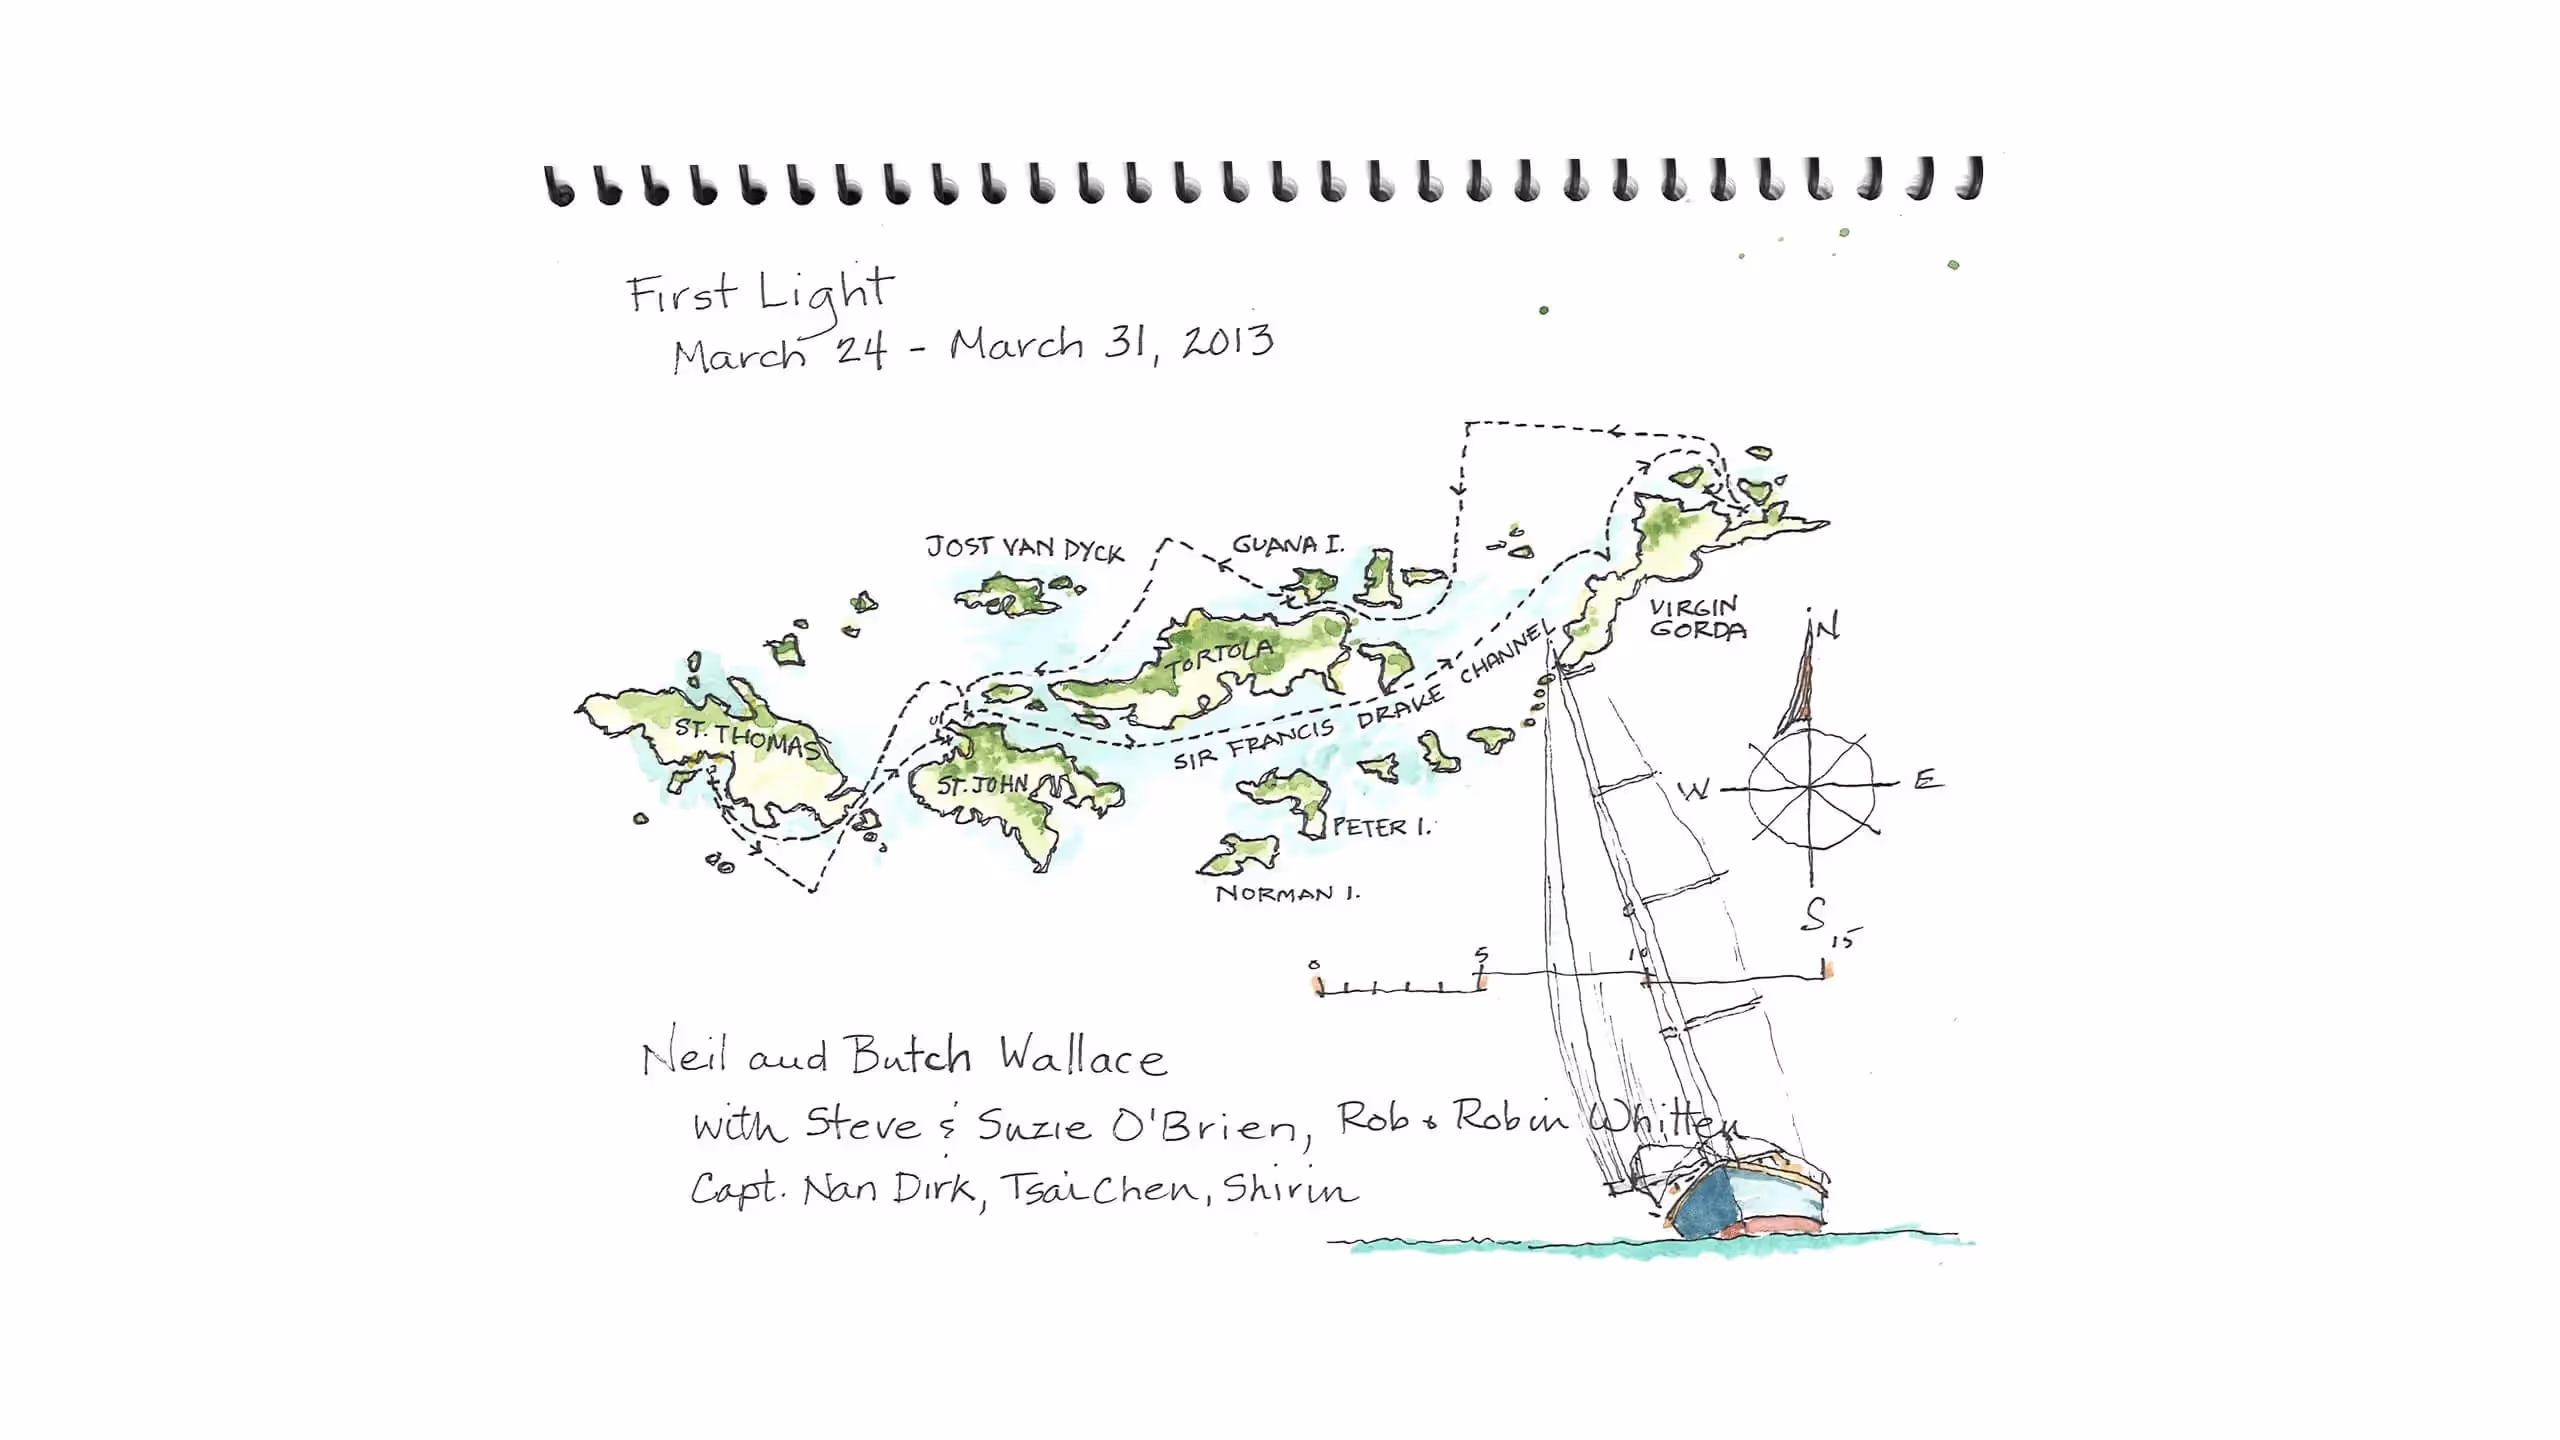 First Light
March 24 - March 31, 2013
JOST VAN DYCK
GUANA I.
VIRGIN
GORDA
N
TORTOLA
ST. THOMAS
SIR FRANCIS DRAKE CHANNEL
ST. JOHN
W
E
PETER I.
NORMAN I.
S
0
5
10
15
Neil and Butch Wallace
with Steve & Suzie O'Brien, Rob & Robin Whitten
Capt. Nan Dirk, Tsai Chen, Shirin